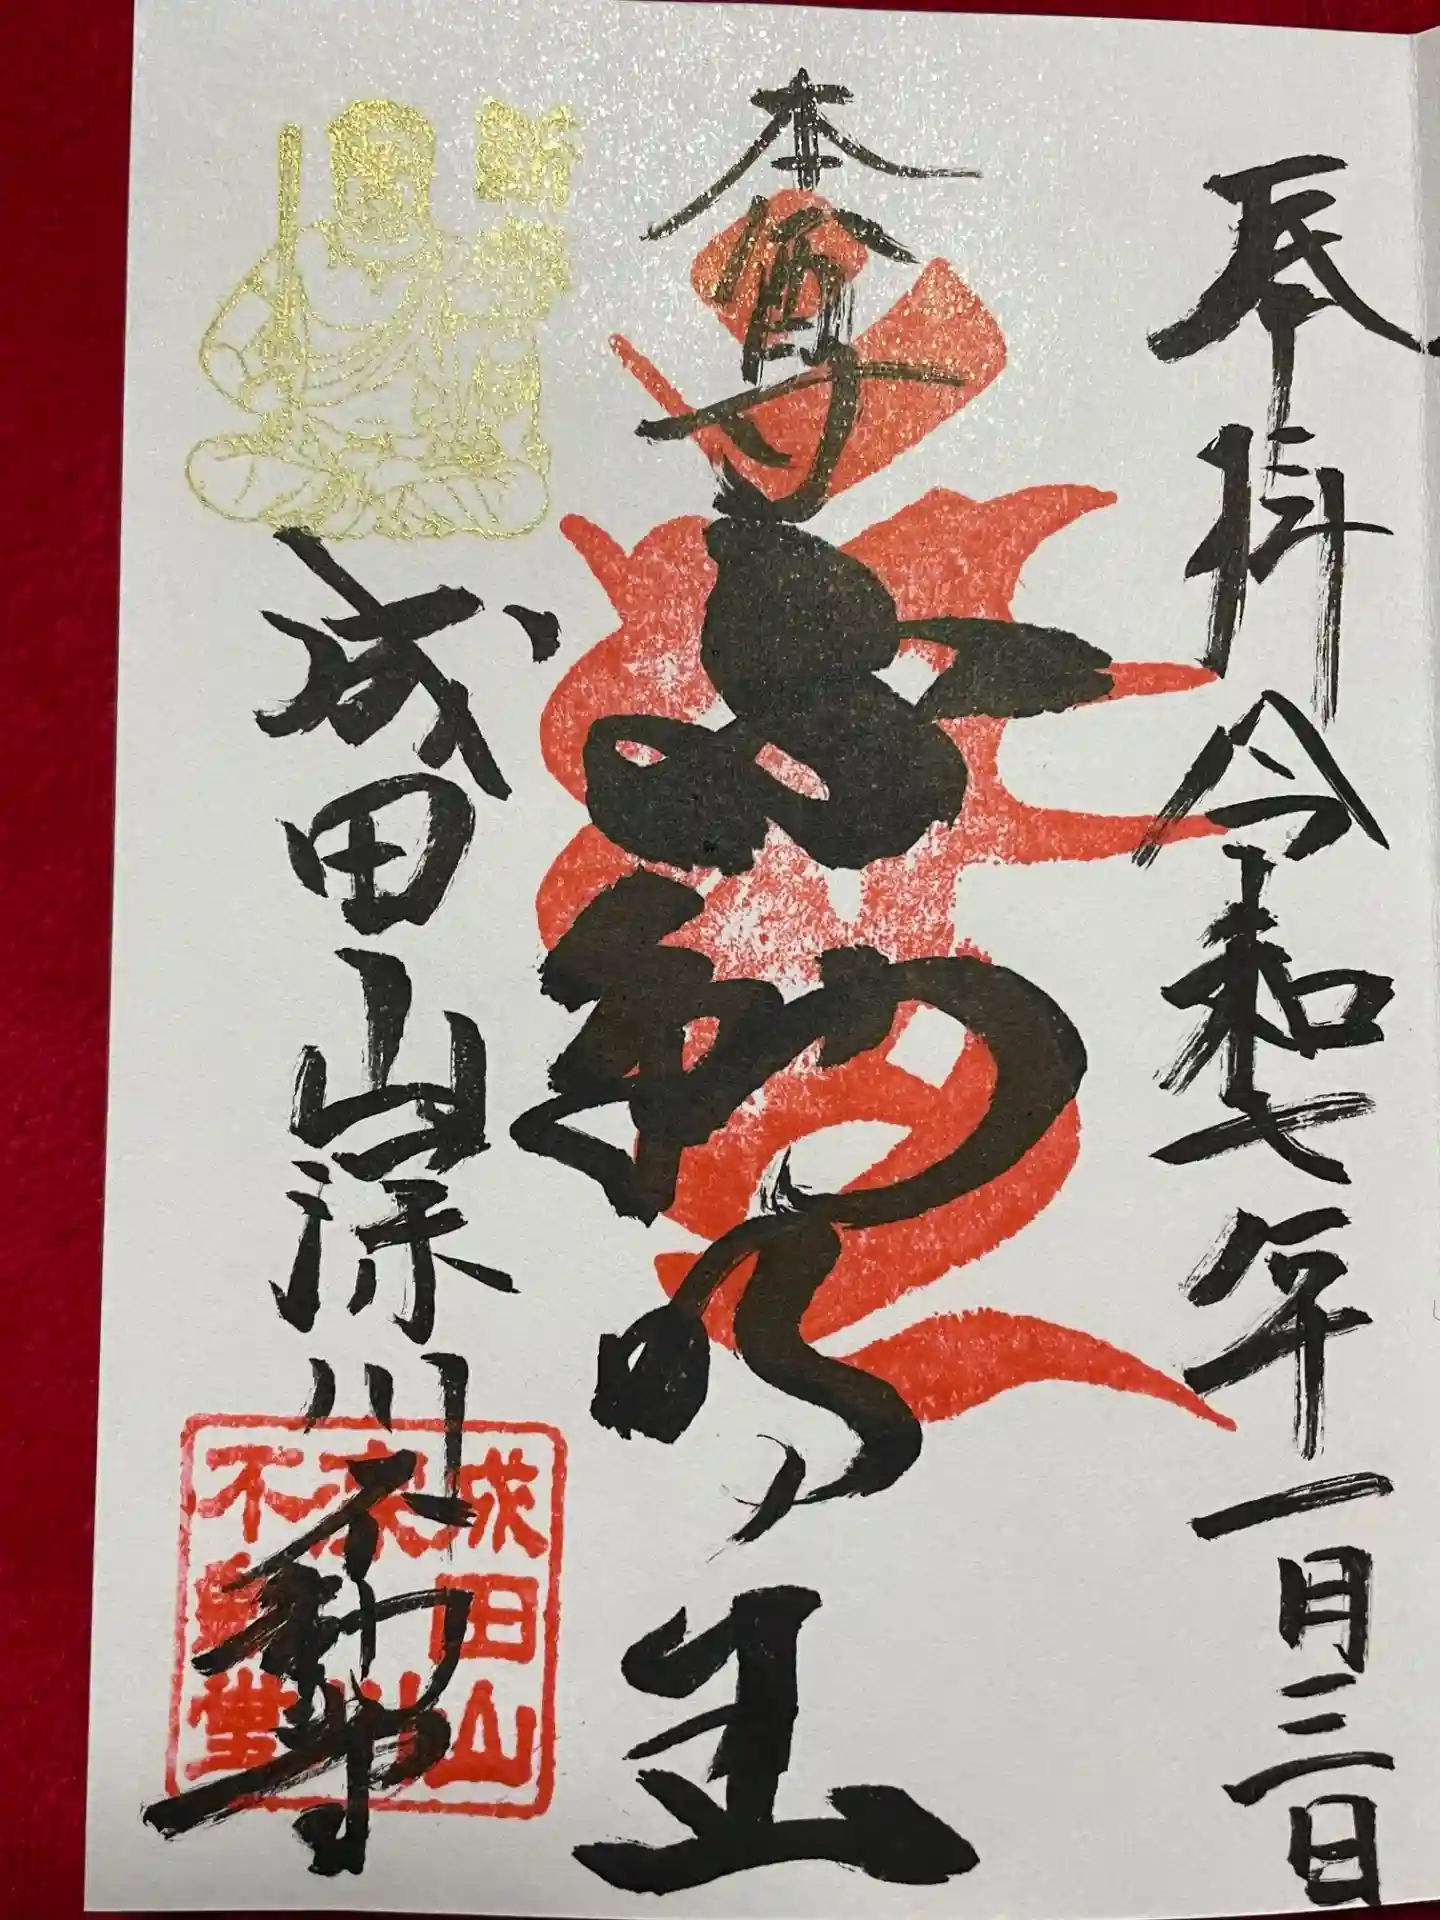 奉拝 令和七年一月三日
本尊
不動明王
成田山深川不動尊
成田山
深川
不動堂